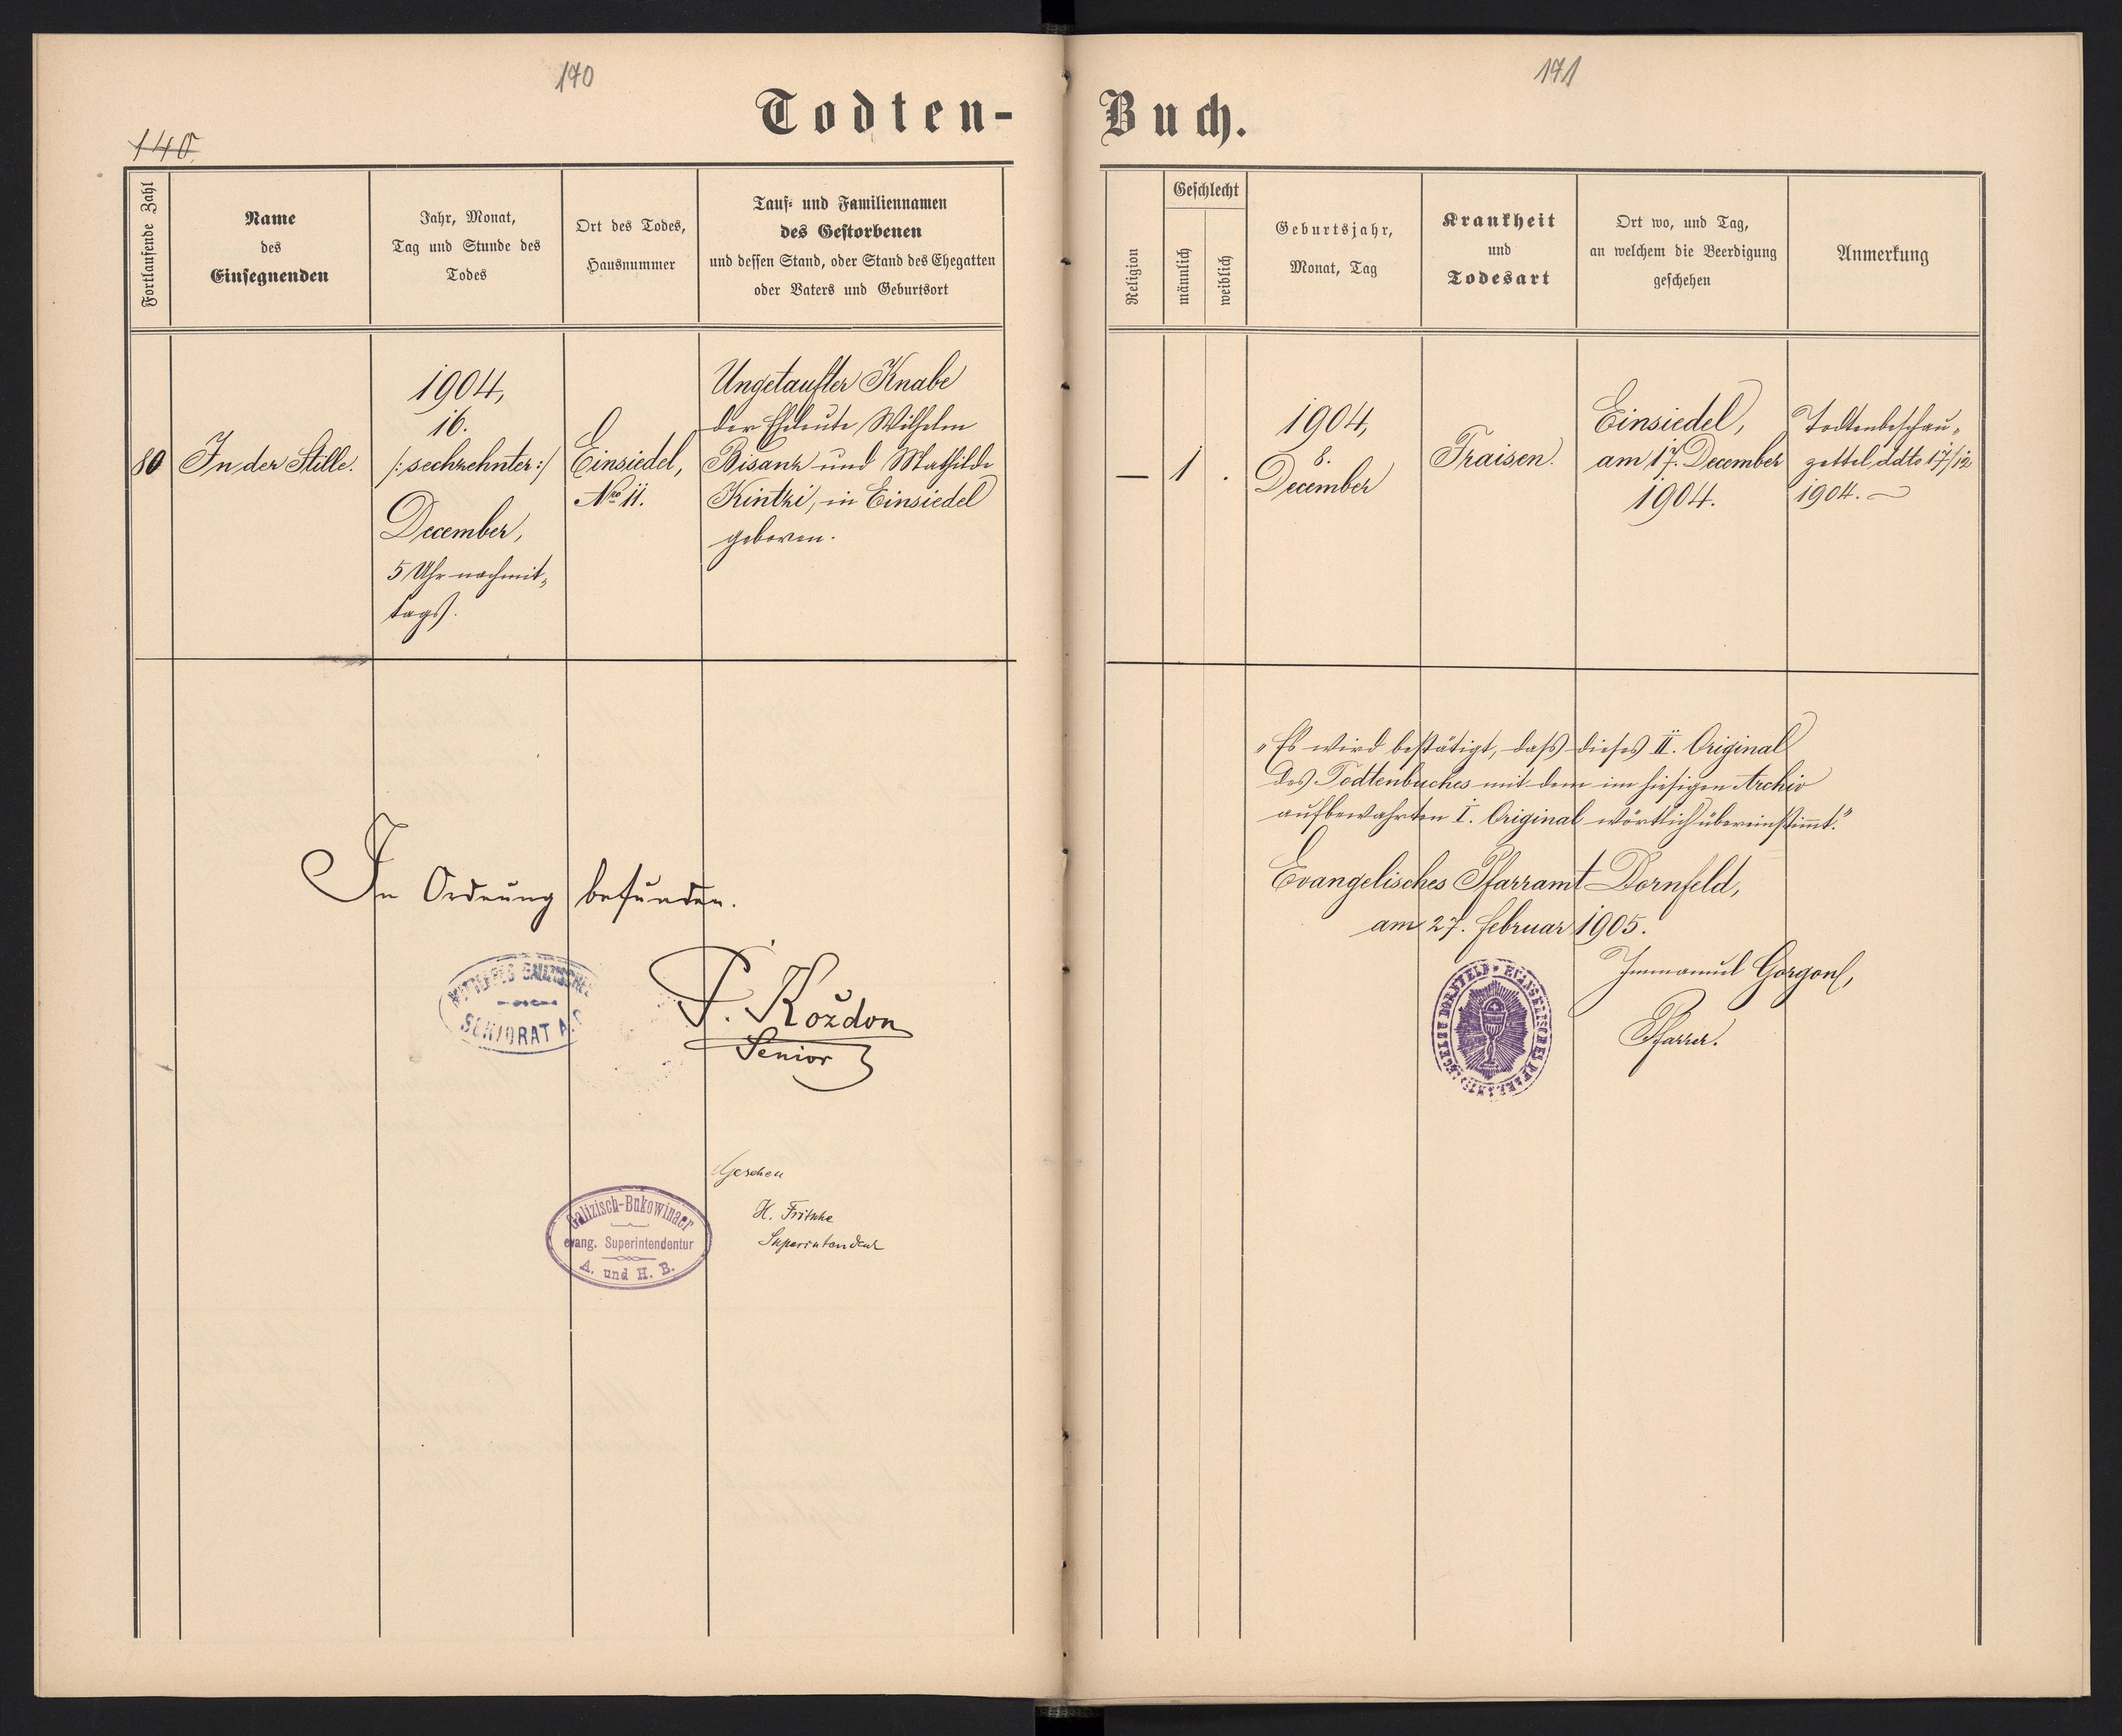 170
171
Todten-
Buch.
140.
Fortlaufende Zahl
Name
des
Einsegnenden
Jahr, Monat,
Tag und Stunde des
Todes
Ort des Todes,
Hausnummer
Tauf- und Familiennamen
des Gestorbenen
und dessen Stand, oder Stand des Ehegatten
oder Vaters und Geburtsort
Religion
Geschlecht
männlich
weiblich
Geburtsjahr,
Monat, Tag
Krankheit
und
Todesart
Ort wo, und Tag,
an welchem die Beerdigung
geschehen
Anmerkung
80
In der Stille.
1904,
16.
/:sechzehnter:/
December,
5 Uhr nachmit„
tags.
Einsiedel,
Nro 11.
Ungetaufter Knabe
der Eheleute Wilhelm
Bisanz und Mathilde
Kintzi, in Einsiedel
geboren.
—
1
.
1904,
8.
December
Fraisen.
Einsiedel,
am 17. December
1904.
Todtenbeschau„
zettel ddto 17/12
1904. —
„Es wird bestätigt, daß dieses II. Original
des Todtenbuches mit dem im hiesigen Archiv
aufbewahrten I. Original wörtlich übereinstimmt."
Evangelisches Pfarramt Dornfeld,
am 27. Februar 1905.
Immanuel Gorgon,
Pfarrer.
EVANGELISCHES PFARRAMTS-SIEGEL ZU DORNFELD
In Ordnung befunden.
GALIZISCHES
SENIORAT A.
P. Koždon
Senior
Gesehen
H. Fritsche
Superintendent
Galizisch-Bukowinaer
evang. Superintendentur
A. und H. B.